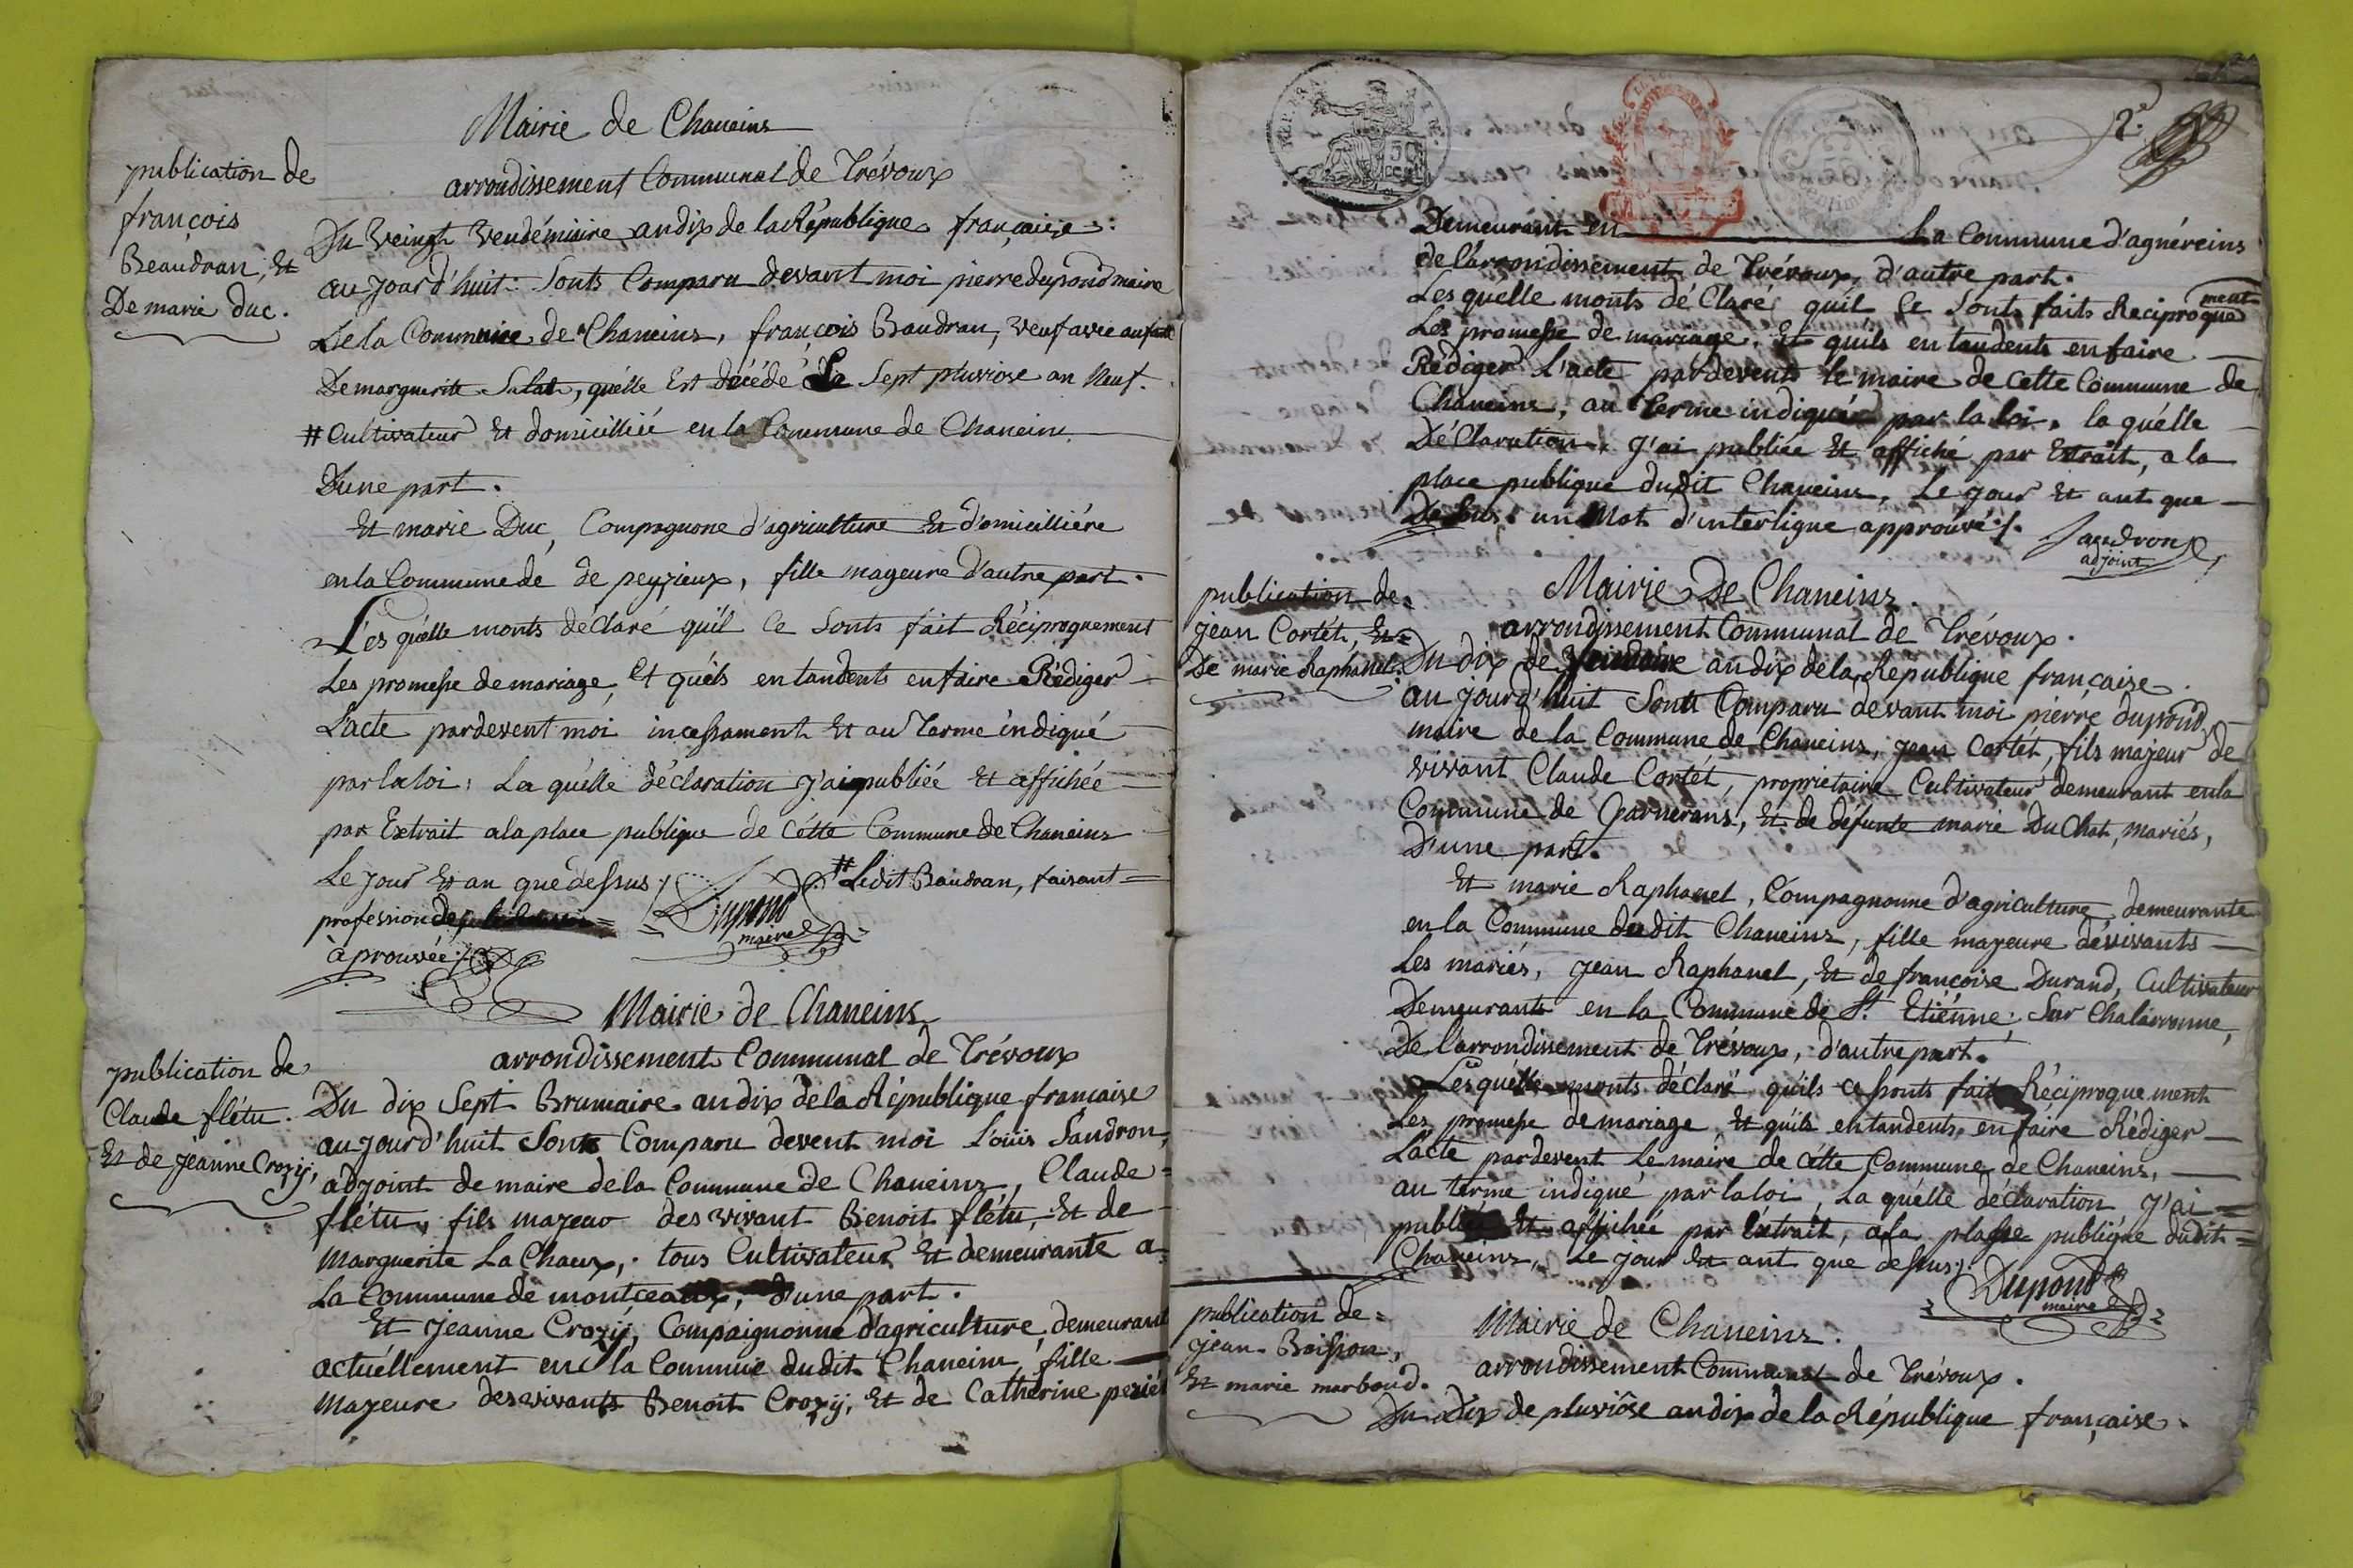 Mairie de Chaneins
arrondissement Communal de Trévoux
publication de
françois
Beaudran, Et
De marie duc.
Du Veingt Vendémiaire an dix de la République françaiṡe :
au jourd'huit Sonts Comparu devant moi pierre dupond maire
De la Commune de Chaneins, françois Baudran, veuf avec
De marguerite Salat, quélle Est décédé Le Sept pluviose an Neuf.
# Cultivateur Et domicilliée en la Commune de Chaneins
D'une part.
Et marie Duc, Compagnone d'agriculture Et d'omicilliére
en la Commune de de peyzieux, fille mageure d'autre part.
Les quélle monts déClaré quil Ce Sonts fait Réciproquement
Les promesse de mariage, et quéls en tandents en faire Rédiger
L'acte pardevent moi incessament Et au Tarme indiqué
par la loi, La quélle déclaration J'ai publiée Et affichée
par Extrait a la place publique de Cétte Commune de Chaneins
Le jour Et an que dessus
# Ledit Baudran, faisant =
profession de
à prouvée
Dupond
maire
Mairie de Chaneins
arrondissement Communal de Trévoux
publication de
Claude flétu.
Et de jéanne Crozij,
Du dix Sept Brumaire an dix de la République française
aujourd'huit Sonts Comparu devent moi Loüis Sandron,
adjoint de maire de la Commune de Chaneins, Claude =
flétu, fils mazeur des vivant Benoit flétu, Et de
Marguerite La Chaux, tous Cultivateur Et demeurante a
La Commune de montceaux, d'une part.
Et jéanne Crozij, Compaignonne d'agriculture demeurant
actuéllement en la Commune dudit Chaneins, fille
Mazeure des vivants Benoit Crozij, Et de Cathérine
2.e
Demeurant en La Commune d'agnéreins
de l'arrondissement de Trévoux, d'autre part.
Les quélle monts déClaré quil Ce Sonts faits Reciproque ment
Les promesse de mariage, Et quils en tandents en faire
Rédiger L'acte pardevents le maire de cette Commune de
Chaneins, au Terme indiquée par la loi, la quélle
DéClaration, J'ai publiée Et affiché par Extrait, a la
place publique dudit Chaneins, Le jour Et ant que
De Sus. un Mot d'interligne approuvé
Sandron
adjoint
Mairie De Chaneins.
arrondissement Communal de Trévoux.
publication de
jean Cortét, Et
De marie Raphanel.
Du dix de an dix de la Republique française
au jourd'huit Sonts Comparu devant moi pierre dupond
maire de la Commune de Chaneins, jean Cortét, fils mazeur de
vivant Claude Cortét, propriétaire Cultivateur demeurant en la
Commune de Garnerans, Et de défunte marie Du Chat, mariés,
D'une part.
Et marie Raphanel, Compagnonne d'agriculture demeurante
en la Commune dudit Chaneins, fille mazeure dévivants
Les mariés, jean Raphanel, Et de françoise Durand, Cultivateur
Demeurants en la Commune de St. Etiénne Sur Chalaronne,
De l'arrondissement de Trévoux, d'autre part.
Les quélle monts déclaré quils ce Sonts fait Réciproquement
Les promesse de mariage, Et quils en tandents en faire Rédiger
L'acte pardevent Le maire de cétte Commune de Chaneins,
au terme indiqué par la loi, La quélle déclaration J'ai =
publiée Et affichée par Extrait, a la place publique dudit =
Chaneins, Le jour Et ant que dessus
Dupond
maire
publication de =
jean Boission,
Et marie marboud.
Mairie de Chaneins.
arrondissement Communal de Trévoux.
Du Dix de pluviôse an dix de la République française.